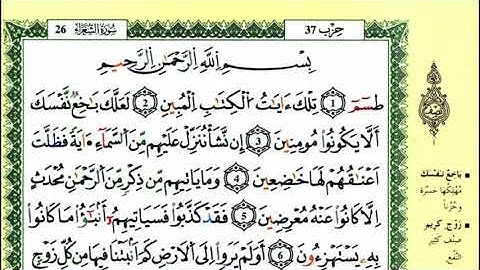 حِزْب 37
سُورَةُ الشُّعَرَاء 26
بِسْمِ اللَّهِ الرَّحْمَٰنِ الرَّحِيمِ
طسٓمٓ 1 تِلْكَ ءَايَٰتُ الْكِتَٰبِ الْمُبِينِ 2 لَعَلَّكَ بَٰخِعٌ نَّفْسَكَ
أَلَّا يَكُونُوا مُومِنِينَ 3 إِن نَّشَأْ نُنَزِّلْ عَلَيْهِم مِّنَ السَّمَآءِ ايَةً فَظَلَّتَ
اَعْنَٰقُهُمْ لَهَا خَٰضِعِينَ 4 وَمَا يَاتِيهِم مِّن ذِكْرٍ مِّنَ الرَّحْمَٰنِ مُحْدَثٍ
اِلَّا كَانُوا عَنْهُ مُعْرِضِينَ 5 فَقَدْ كَذَّبُوا فَسَيَاتِيهِمُۥٓ أَنۢبَٰٓؤُا مَا كَانُوا
بِهِۦ يَسْتَهْزِءُونَ 6 أَوَلَمْ يَرَوِا اِلَى الَارْضِ كَمَ اَنۢبَتْنَا فِيهَا مِن كُلِّ زَوْجٍ
بَاخِعٌ نَفْسَكَ
مُهْلِكُهَا حَسْرَةً
وَحُزْناً
زَوْجٍ كَرِيمٍ
صِنْفٍ كَثِيرِ
النَّفْعِ